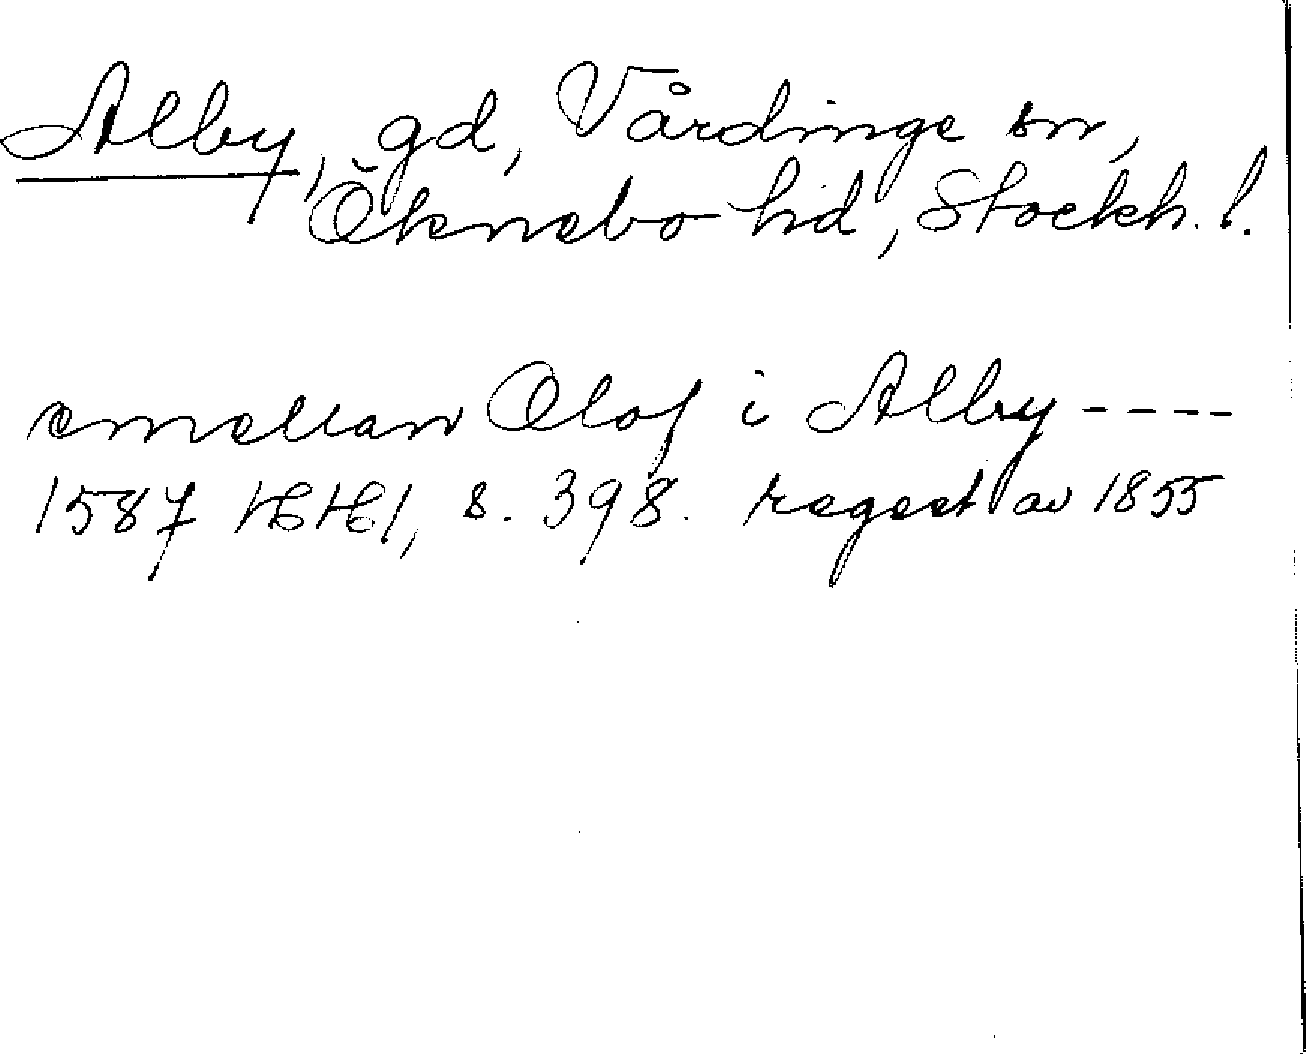 Alby, gd, Vårdinge sn,
Öknebo hd, Stockh. l.
emellan Olof i Alby ----
1587 HH1, s. 398. regest av 1855